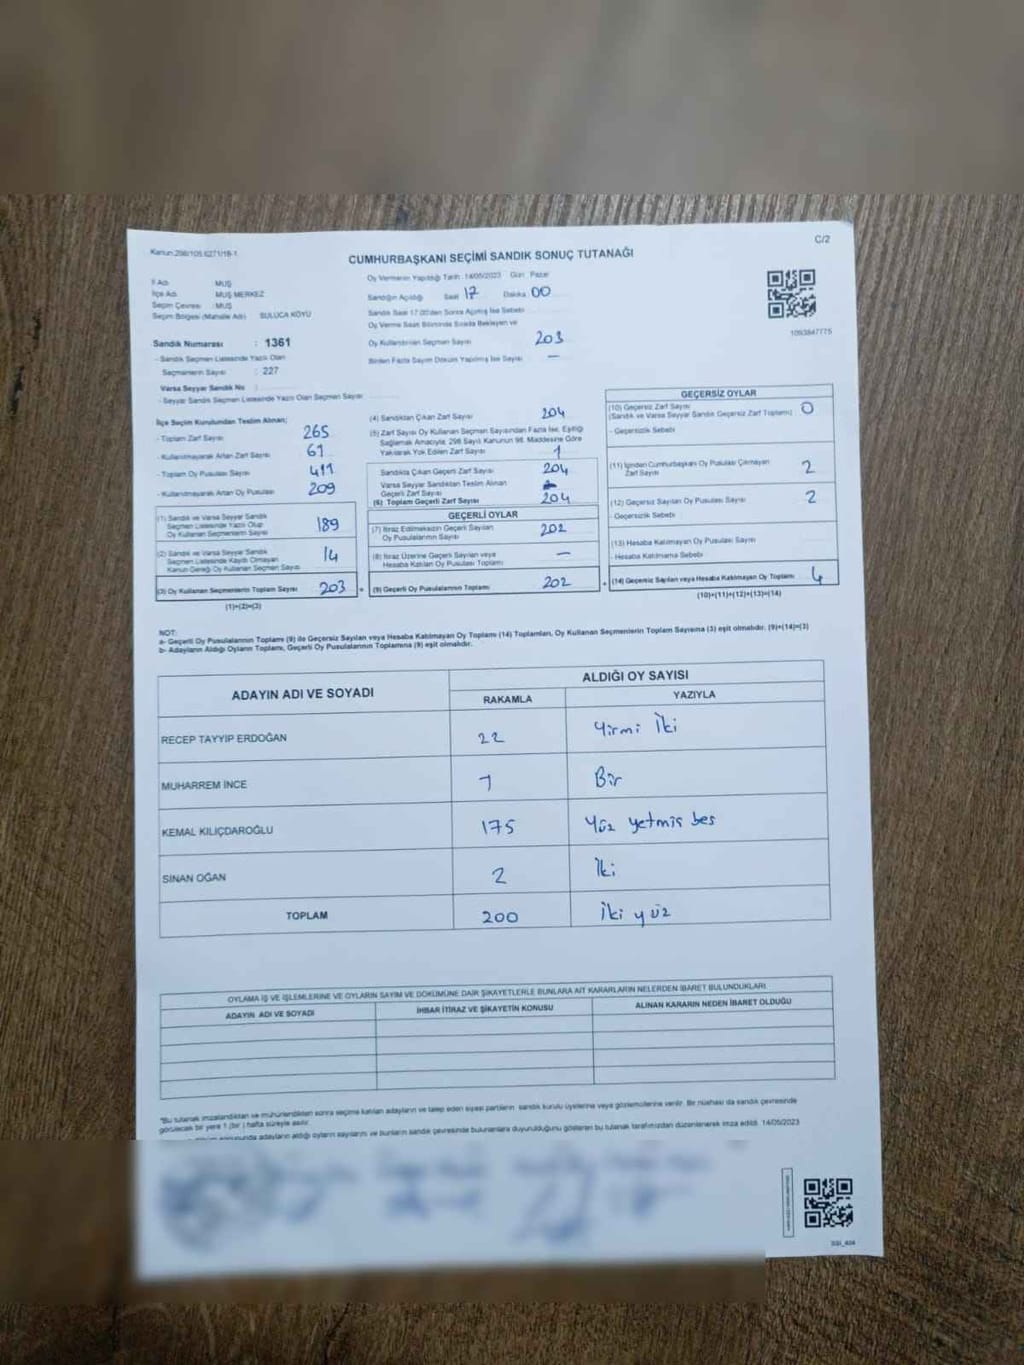 Kanun.298/105.6271/18-1
C/2
CUMHURBAŞKANI SEÇİMİ SANDIK SONUÇ TUTANAĞI
İl Adı : MUŞ
İlçe Adı : MUŞ MERKEZ
Seçim Çevresi : MUŞ
Seçim Bölgesi (Mahalle Adı) SULUCA KÖYÜ
Sandık Numarası : 1361
- Sandık Seçmen Listesinde Yazılı Olan
Seçmenlerin Sayısı : 227
Varsa Seyyar Sandık No :
- Seyyar Sandık Seçmen Listesinde Yazılı Olan Seçmen Sayısı
Oy Vermenin Yapıldığı Tarih :14/05/2023 Gün : Pazar
Sandığın Açıldığı Saat 17 Dakika 00
Sandık Saat 17.00'den Sonra Açılmış İse Sebebi
Oy Verme Saati Bitiminde Sırada Bekleyen ve
Oy Kullandırılan Seçmen Sayısı 203
Birden Fazla Sayım Döküm Yapılmış İse Sayısı —
1093847775
İlçe Seçim Kurulundan Teslim Alınan;
- Toplam Zarf Sayısı 265
- Kullanılmayarak Artan Zarf Sayısı 61
- Toplam Oy Pusulası Sayısı 411
- Kullanılmayarak Artan Oy Pusulası 209
(1) Sandık ve Varsa Seyyar Sandık
Seçmen Listesinde Yazılı Olup
Oy Kullanan Seçmen Sayısı 189
(2) Sandık ve Varsa Seyyar Sandık
Seçmen Listesinde Kayıtlı Olmayan
Kanun Gereği Oy Kullanan Seçmen Sayısı 14
(3) Oy Kullanan Seçmenlerin Toplam Sayısı 203
(1)+(2)=(3)
(4) Sandıktan Çıkan Zarf Sayısı 204
(5) Zarf Sayısı Oy Kullanan Seçmen Sayısından Fazla İse, Eşitliği
Sağlamak Amacıyla, 298 Sayılı Kanunun 98. Maddesine Göre
Yakılarak Yok Edilen Zarf Sayısı 1
Sandıkta Çıkan Geçerli Zarf Sayısı 204
Varsa Seyyar Sandıktan Teslim Alınan
Geçerli Zarf Sayısı
(6) Toplam Geçerli Zarf Sayısı 204
GEÇERLİ OYLAR
(7) İtiraz Edilmeksizin Geçerli Sayılan
Oy Pusulalarının Sayısı 202
(8) İtiraz Üzerine Geçerli Sayılan veya
Hesaba Katılan Oy Pusulası Toplamı —
+ (9) Geçerli Oy Pusulalarının Toplamı 202
GEÇERSİZ OYLAR
(10) Geçersiz Zarf Sayısı
(Sandık ve Varsa Seyyar Sandın Geçersiz Zarf Toplamı) 0
- Geçersizlik Sebebi
(11) İçinden Cumhurbaşkanı Oy Pusulası Çıkmayan
Zarf Sayısı 2
(12) Geçersiz Sayılan Oy Pusulası Sayısı 2
- Geçersizlik Sebebi :
(13) Hesaba Katılmayan Oy Pusulası Sayısı
- Hesaba Katılmama Sebebi
+ (14) Geçersiz Sayılan veya Hesaba Katılmayan Oy Toplamı 4
(10)+(11)+(12)+(13)=(14)
NOT:
a- Geçerli Oy Pusulalarının Toplamı (9) ile Geçersiz Sayılan veya Hesaba Katılmayan Oy Toplamı (14) Toplamları, Oy Kullanan Seçmenlerin Toplam Sayısına (3) eşit olmalıdır. (9)+(14)=(3)
b- Adayların Aldığı Oyların Toplamı, Geçerli Oy Pusulalarının Toplamına (9) eşit olmalıdır.
ADAYIN ADI VE SOYADI
ALDIĞI OY SAYISI
RAKAMLA YAZIYLA
RECEP TAYYIP ERDOĞAN 22 Yirmi İki
MUHARREM İNCE 1 Bir
KEMAL KILIÇDAROĞLU 175 Yüz yetmis bes
SİNAN OĞAN 2 İki
TOPLAM 200 İki yüz
OYLAMA İŞ VE İŞLEMLERİNE VE OYLARIN SAYIM VE DÖKÜMÜNE DAİR ŞİKAYETLERLE BUNLARA AİT KARARLARIN NELERDEN İBARET BULUNDUKLARI
ADAYIN ADI VE SOYADI
İHBAR İTİRAZ VE ŞİKAYETİN KONUSU
ALINAN KARARIN NEDEN İBARET OLDUĞU
"Bu tutanak imzalandıktan ve mühürlendikten sonra seçime katılan adayların ve talep eden siyasi partilerin sandık kurulu üyelerine veya gözlemcilerine verilir. Bir nüshası da sandık çevresinde
görülecek bir yere 1 (bir ) hafta süreyle asılır.
sonucunda adayların aldığı oyların sayılarını ve bunların sandık çevresinde bulunanlara duyurulduğunu gösteren bu tutanak tarafımızdan düzenlenerek imza edildi. 14/05/2023